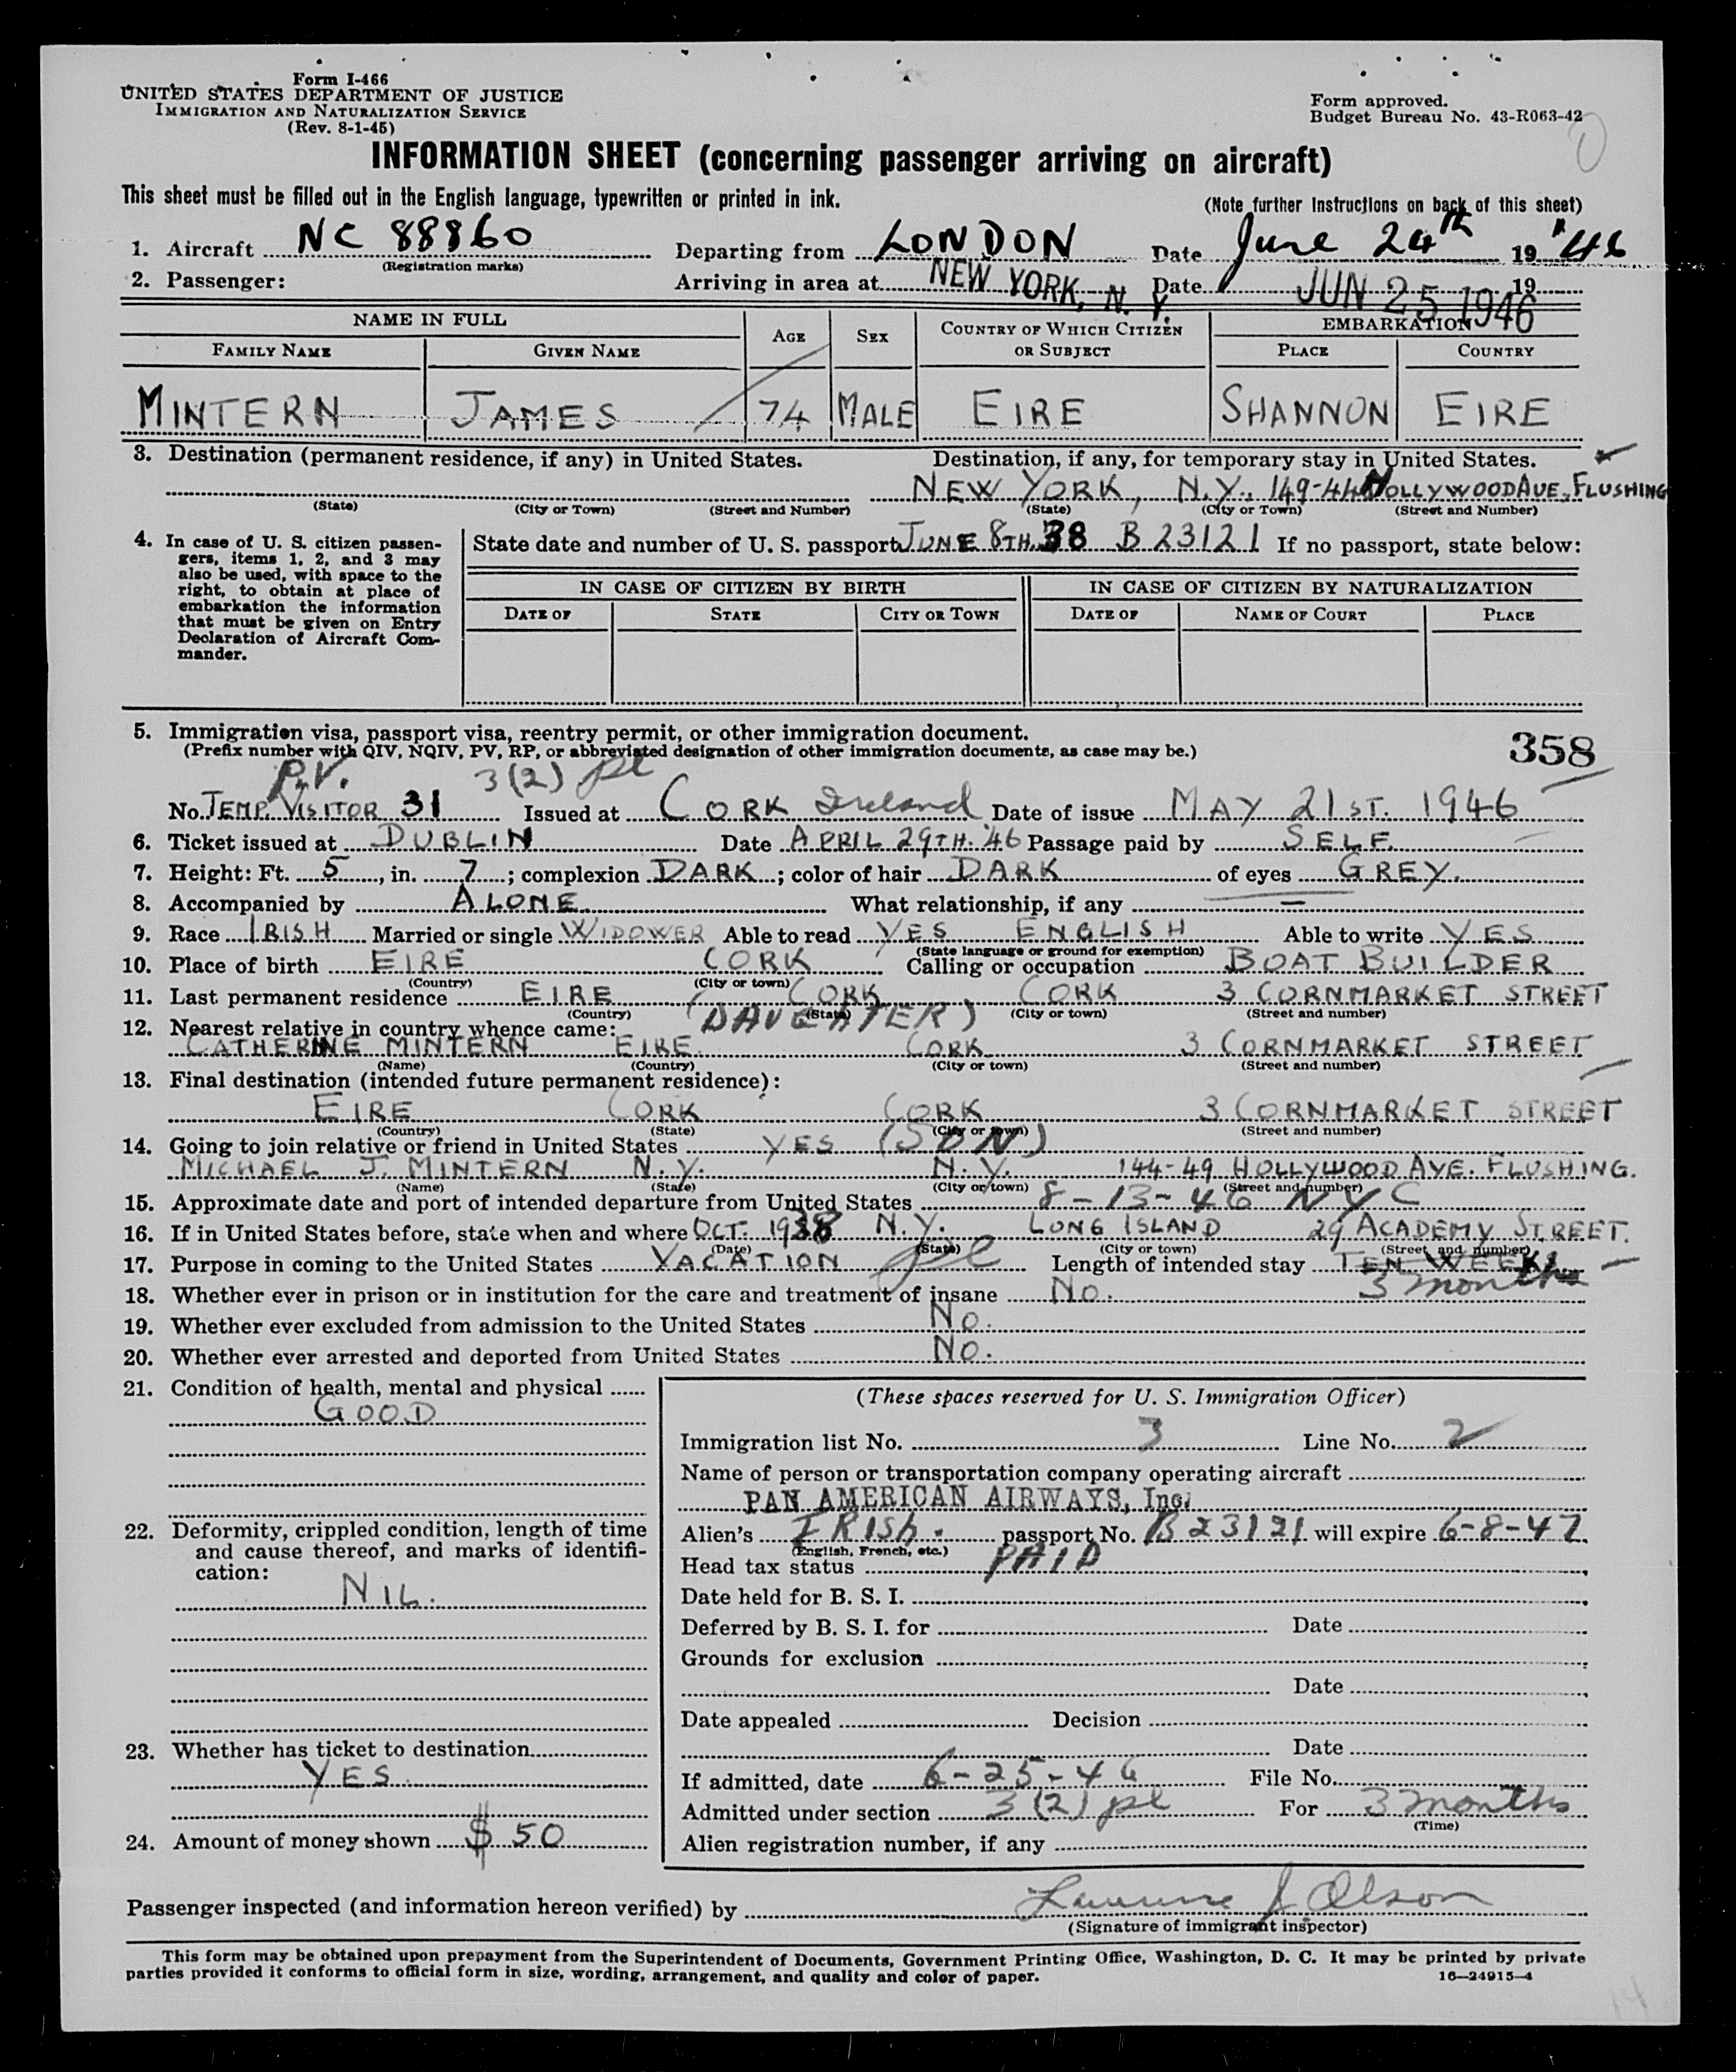 Form I-466
UNITED STATES DEPARTMENT OF JUSTICE
IMMIGRATION AND NATURALIZATION SERVICE
(Rev. 8-1-45)
Form approved.
Budget Bureau No. 43-R063-42
INFORMATION SHEET (concerning passenger arriving on aircraft)
This sheet must be filled out in the English language, typewritten or printed in ink.
(Note further instructions on back of this sheet)
1. Aircraft NC 88860 Departing from LONDON Date June 24th 19 46
(Registration marks)
2. Passenger: Arriving in area at NEW YORK, N. Y. Date JUN 25 1946 19
NAME IN FULL AGE SEX COUNTRY OF WHICH CITIZEN OR SUBJECT EMBARKATION
FAMILY NAME GIVEN NAME PLACE COUNTRY
MINTERN JAMES 74 MALE EIRE SHANNON EIRE
3. Destination (permanent residence, if any) in United States. Destination, if any, for temporary stay in United States.
NEW YORK, N.Y., 149-44 HOLLYWOOD AVE, FLUSHING
(State) (City or Town) (Street and Number) (State) (City or Town) (Street and Number)
4. In case of U. S. citizen passengers, items 1, 2, and 3 may also be used, with space to the right, to obtain at place of embarkation the information that must be given on Entry Declaration of Aircraft Commander.
State date and number of U. S. passport JUNE 8TH. 38 B 23121 If no passport, state below:
IN CASE OF CITIZEN BY BIRTH IN CASE OF CITIZEN BY NATURALIZATION
DATE OF STATE CITY OR TOWN DATE OF NAME OF COURT PLACE
5. Immigration visa, passport visa, reentry permit, or other immigration document.
(Prefix number with QIV, NQIV, PV, RP, or abbreviated designation of other immigration documents, as case may be.)
358
P.V. 3(2) pl
No. TEMP. VISITOR 31 Issued at CORK Ireland Date of issue MAY 21ST. 1946
6. Ticket issued at DUBLIN Date APRIL 29TH. '46 Passage paid by SELF.
7. Height: Ft. 5, in. 7; complexion DARK; color of hair DARK of eyes GREY.
8. Accompanied by ALONE What relationship, if any —
9. Race IRISH Married or single WIDOWER Able to read YES ENGLISH Able to write YES
(State language or ground for exemption)
10. Place of birth EIRE CORK Calling or occupation BOAT BUILDER
(Country) (City or town)
11. Last permanent residence EIRE CORK CORK 3 CORNMARKET STREET
(Country) (State) (City or town) (Street and number)
12. Nearest relative in country whence came: (DAUGHTER)
CATHERINE MINTERN EIRE CORK 3 CORNMARKET STREET
(Name) (Country) (City or town) (Street and number)
13. Final destination (intended future permanent residence):
EIRE CORK CORK 3 CORNMARKET STREET
(Country) (State) (City or town) (Street and number)
14. Going to join relative or friend in United States YES (SON)
MICHAEL J. MINTERN N.Y. N.Y. 144-49 HOLLYWOOD AVE. FLUSHING.
(Name) (State) (City or town) (Street and number)
15. Approximate date and port of intended departure from United States 8-13-46 NYC
16. If in United States before, state when and where OCT. 1938 N.Y. LONG ISLAND 29 ACADEMY STREET.
(Date) (State) (City or town) (Street and number)
17. Purpose in coming to the United States VACATION pl Length of intended stay TEN WEEKS
3 months
18. Whether ever in prison or in institution for the care and treatment of insane NO.
19. Whether ever excluded from admission to the United States NO.
20. Whether ever arrested and deported from United States NO.
21. Condition of health, mental and physical
GOOD
22. Deformity, crippled condition, length of time and cause thereof, and marks of identification:
NIL.
23. Whether has ticket to destination
YES.
24. Amount of money shown $ 50
(These spaces reserved for U. S. Immigration Officer)
Immigration list No. 3 Line No. 2
Name of person or transportation company operating aircraft
PAN AMERICAN AIRWAYS, Inc.
Alien's IRISH. passport No. B 23121 will expire 6-8-47
(English, French, etc.)
Head tax status PAID
Date held for B. S. I.
Deferred by B. S. I. for Date
Grounds for exclusion
Date
Date appealed Decision
Date
If admitted, date 6-25-46 File No.
Admitted under section 3(2) pl For 3 months
(Time)
Alien registration number, if any
Passenger inspected (and information hereon verified) by J Olson
(Signature of immigrant inspector)
This form may be obtained upon prepayment from the Superintendent of Documents, Government Printing Office, Washington, D. C. It may be printed by private
parties provided it conforms to official form in size, wording, arrangement, and quality and color of paper.
16—24915-4
14